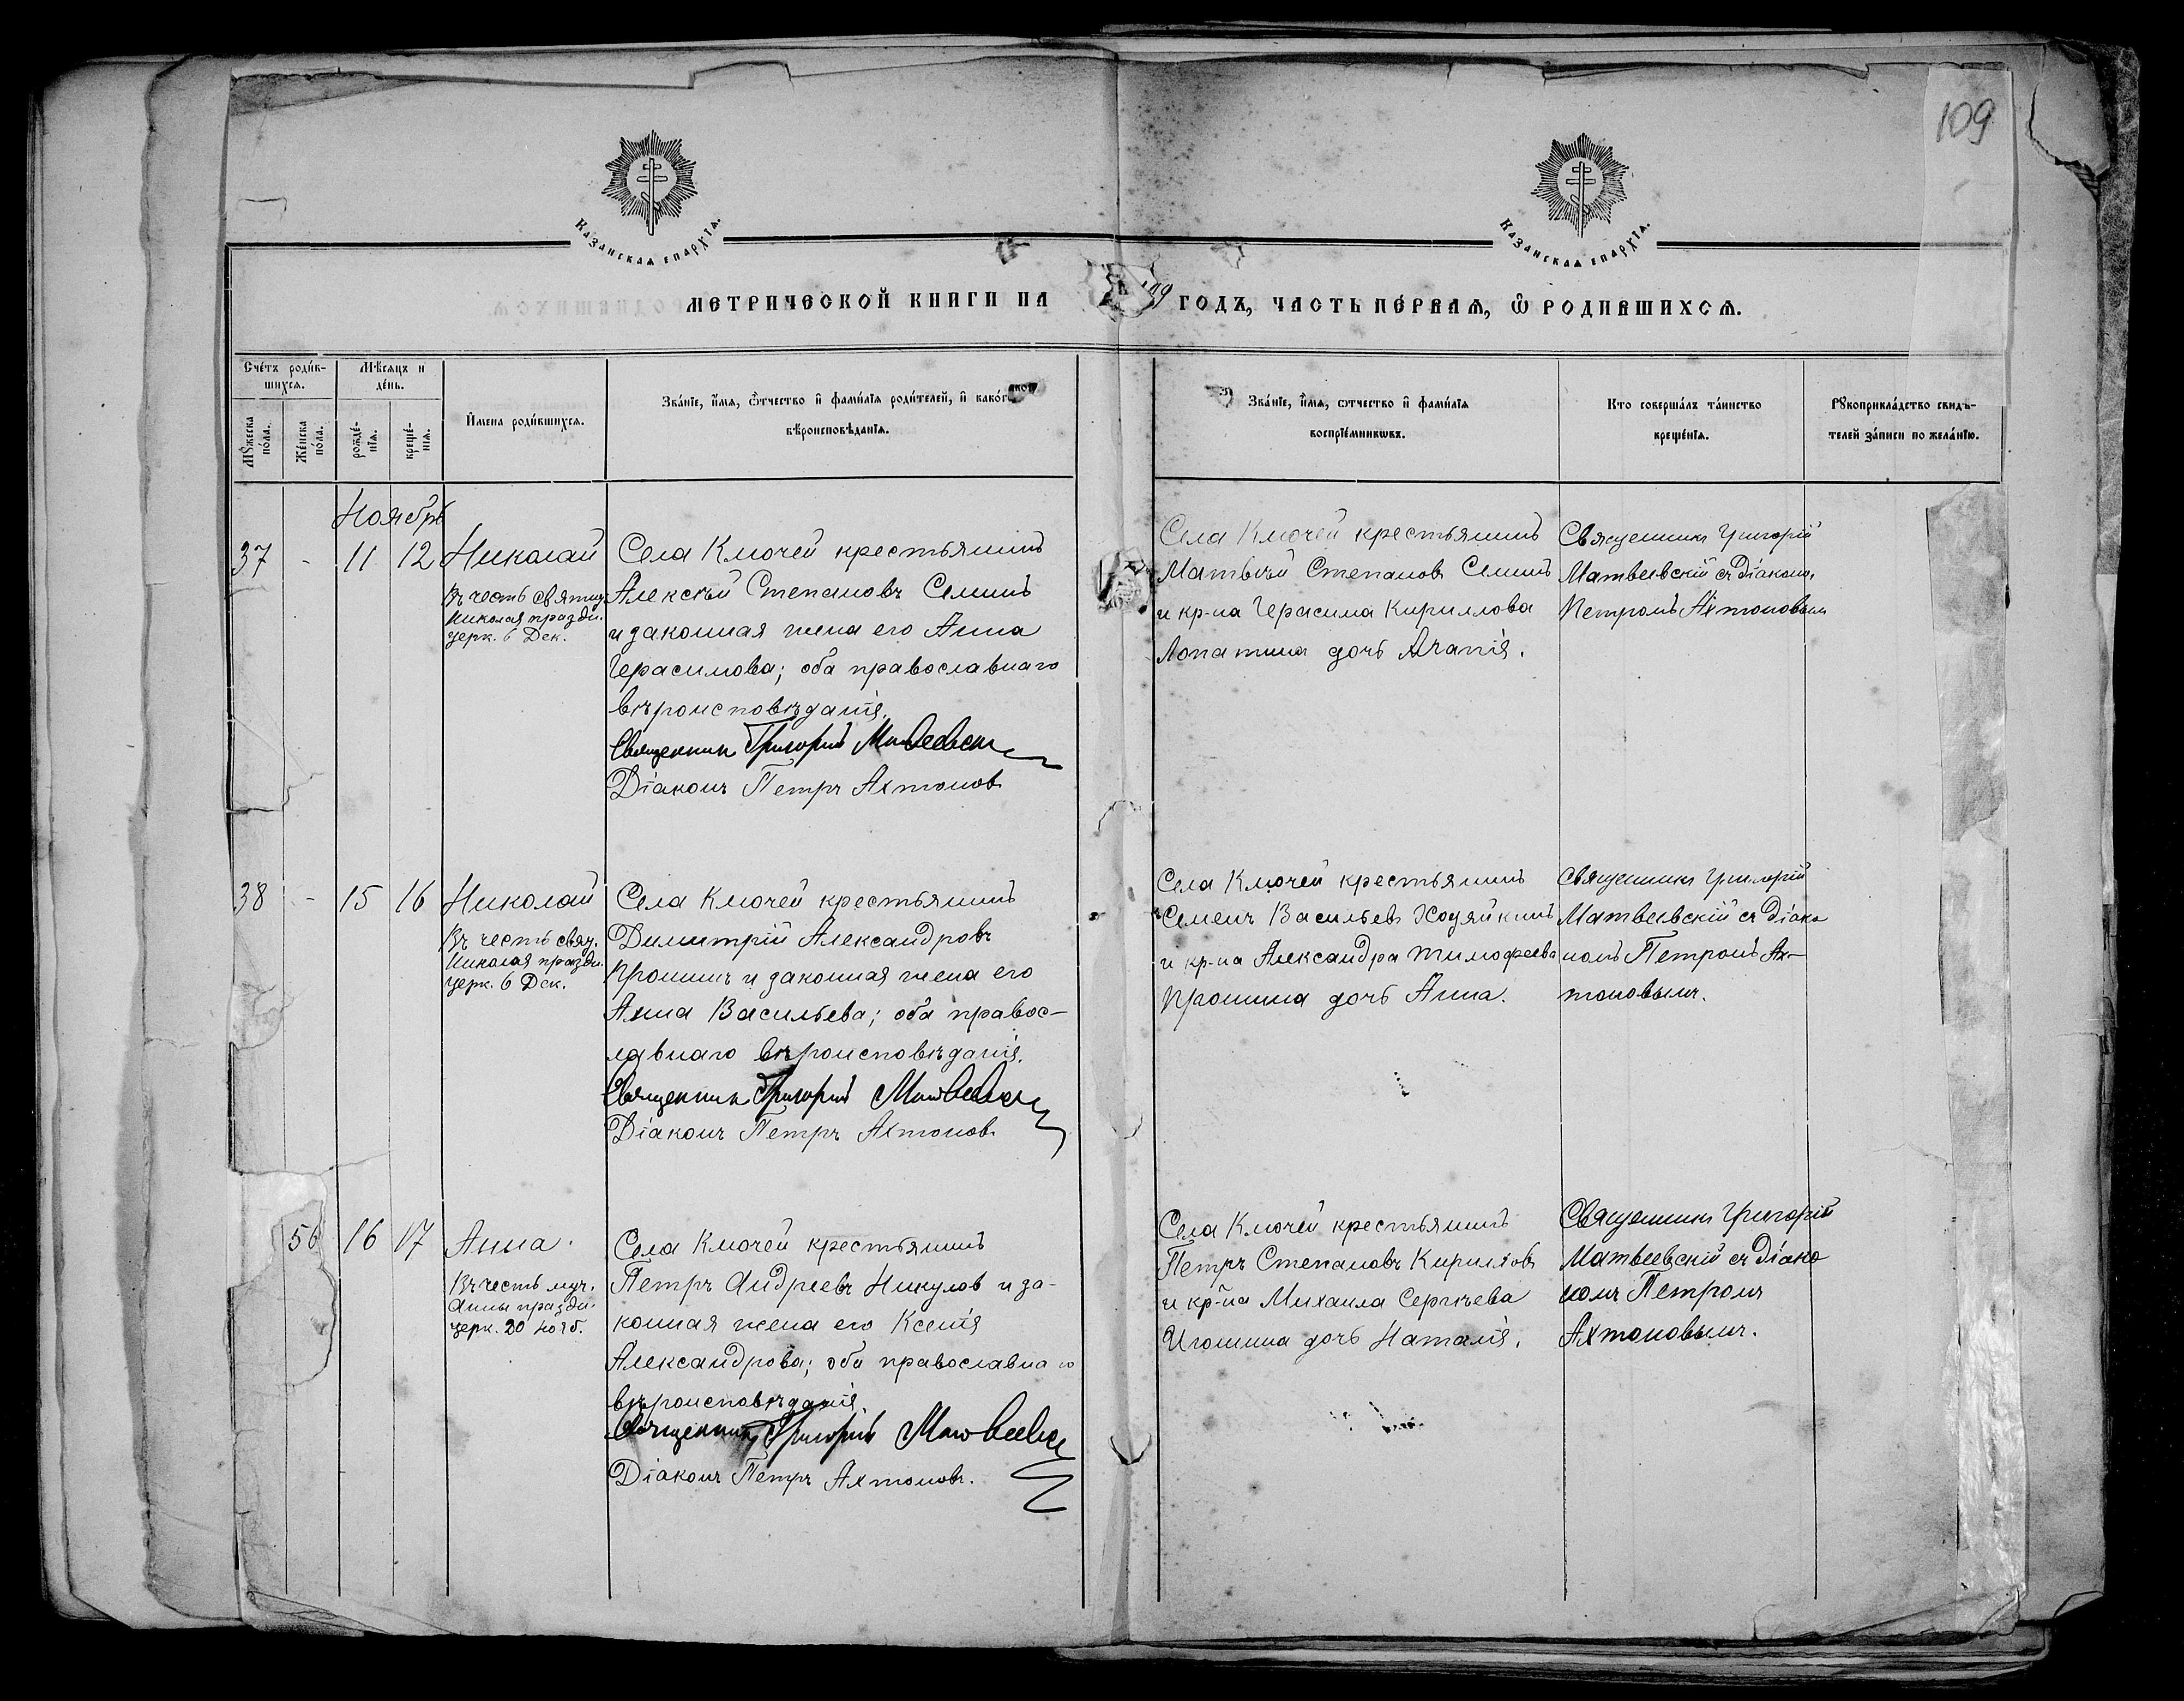 109
Казанская епархїа.
Казанская епархїа.
МЕТРИЧЕСКОЙ КНИГИ НА
ГОДЪ, ЧАСТЬ ПЕРВАЯ, Ѿ РОДИВШИХСЯ.
Счетъ родив-
шихся.
Мѣсяцъ и
день.
Мужеска
пола.
Женска
пола.
рожде-
нїя.
креще-
нїя.
Имена родившихся.
Званїе, имя, ѿтчество и фамилїя родителей, и како́г
вѣроисповѣданїя.
Званїе, имя, отчество и фамилїя
воспрїемниковъ.
Кто совершалъ таинство
крещенїя.
Рукоприкладство свидѣ-
телей записи по желанїю.
Ноябрь
37 - 11 12 Николай
Въ честь святит.
Николая праздн.
церк. 6 Дек.
Села Ключей крестьянинъ
Алексѣй Степановъ Семинъ
и законная жена его Анна
Герасимова; оба православнаго
вѣроисповѣданія.
Священникъ Григорій Матвеевскій
Діаконъ Петръ Ахтоновъ
Села Ключей крестьянинъ
Матвѣй Степановъ Семинъ
и кр-на Герасима Кириллова
Лопатина дочь Агапія.
Священникъ Григорій
Матвеевскій съ Діакономъ
Петромъ Ахтоновымъ
38 - 15 16 Николай
Въ честь свят.
Николая праздн.
церк. 6 Дек.
Села Ключей крестьянинъ
Димитрій Александровъ
Прошинъ и законная жена его
Анна Васильева; оба правос-
лавнаго вѣроисповѣданія.
Священникъ Григорій Матвеевскій
Діаконъ Петръ Ахтоновъ
Села Ключей крестьянинъ
Семенъ Васильевъ Ходяйкинъ
и кр-на Александра Тимофеева
Прошина дочь Анна.
Священникъ Григорій
Матвеевскій съ Діако
номъ Петромъ Ах-
тоновымъ.
56 16 17 Анна.
Въ честь муч.
Анны праздн.
церк. 20 нояб.
Села Ключей крестьянинъ
Петръ Андреевъ Никулов и за-
конная жена его Ксенія
Александрова; оба православнаго
вѣроисповѣданія.
Священникъ Григорій Матвеевскій
Діаконъ Петръ Ахтоновъ.
Села Ключей крестьянинъ
Петръ Степановъ Кириловъ
и кр-на Михаила Сергѣева
Игошина дочь Наталія.
Священникъ Григорій
Матвеевскій съ Діако
номъ Петромъ
Ахтоновымъ.